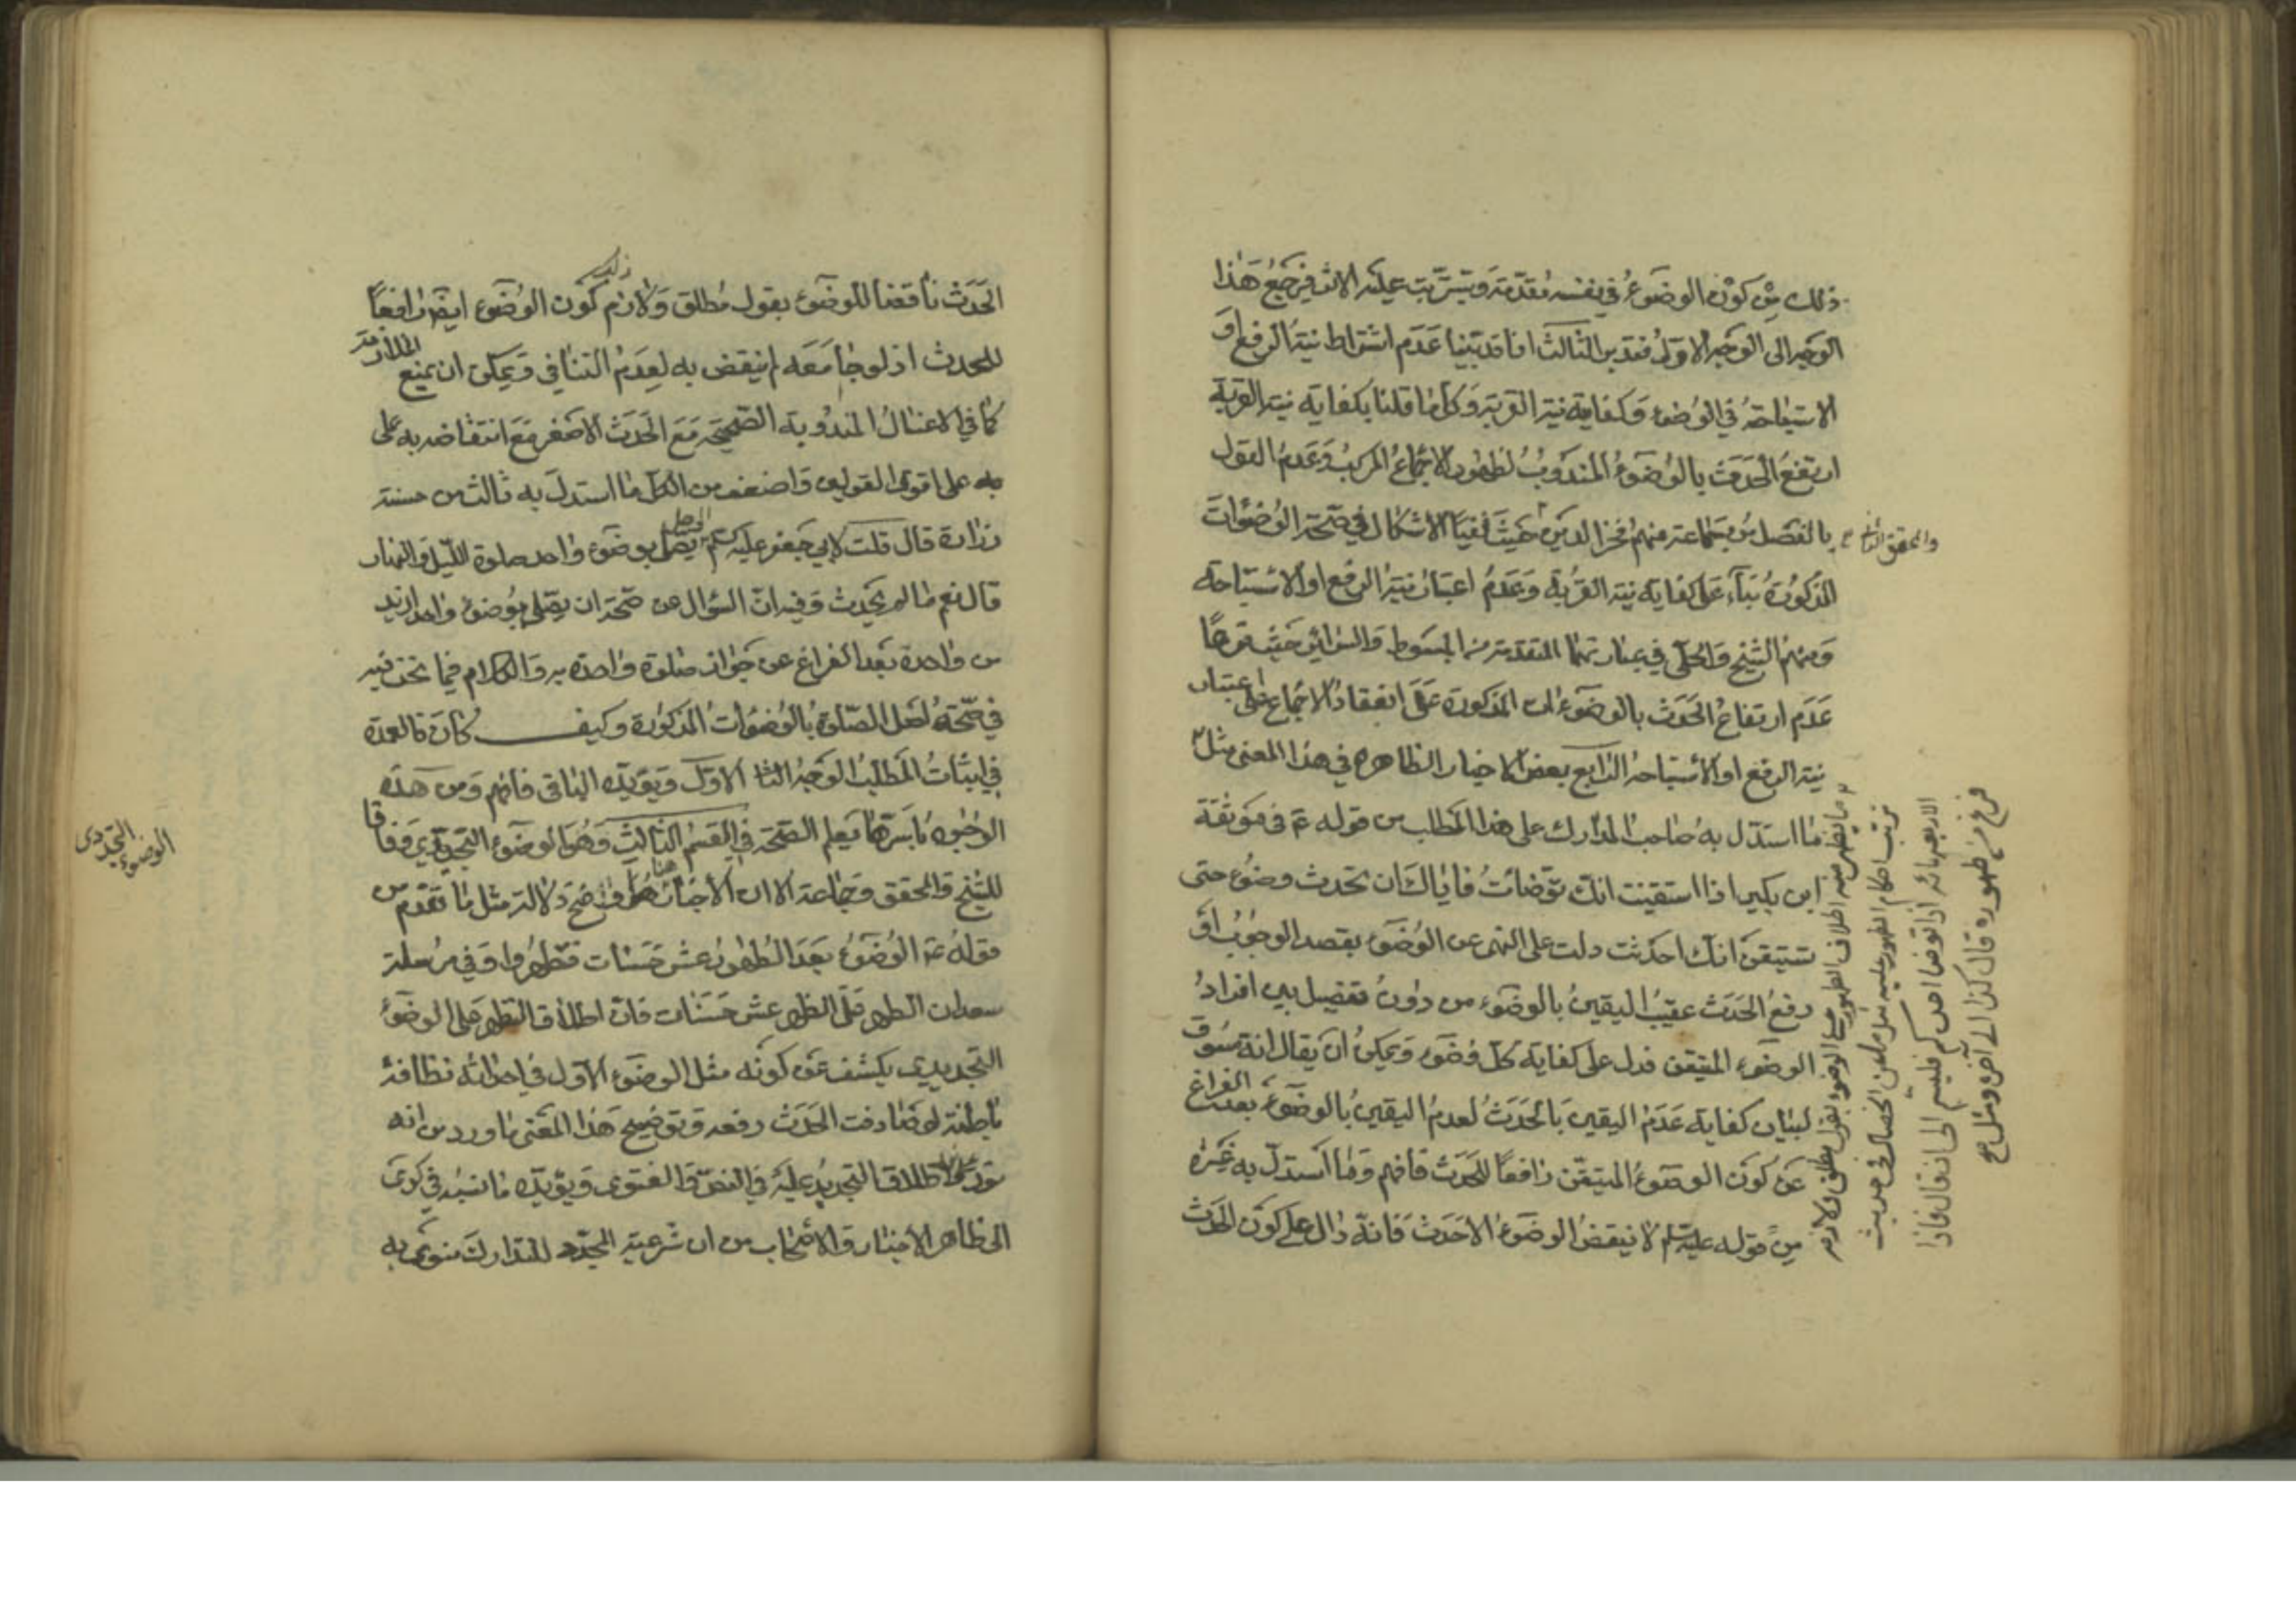 ذلك من كون الوضوء في نفسه مقدمة ويترتب عليه الاثر فيرجع هذا
الوجه الى الوجه الاول فتدبر الثالث انا قد بينا عدم اشتراط نية الرفع او
الاستباحة في الوضوء وكفاية نية القربة وكل ما قلنا بكفاية نية القربة
ارتفع الحدث بالوضوء المندوب لظهور الاجماع المركب وعدم القول
بالفصل من جماعة منهم فخر الدين حيث نفيا الاشكال في صحة الوضوءات
والمحقق الثاني
المذكورة بناء على كفاية نية القربة وعدم اعتبار نية الرفع او الاستباحة
ومنهم الشيخ والحلي في عبارتهما المتقدمة من المبسوط والسرائر حيث فرعا
عدم ارتفاع الحدث بالوضوءات المذكورة على انعقاد الاجماع على اعتبار
نية الرفع او الاستباحة الرابع بعض الاخبار الظاهرة في هذا المعنى مثل
ما استدل به صاحب المدارك على هذا المطلب من قوله ع في موثقة
ابن بكير اذا استيقنت انك توضأت فاياك ان تحدث وضوء حتى
تستيقن انك احدثت دلت على النهى عن الوضوء بقصد الوجوب او
رفع الحدث عقيب اليقين بالوضوء من دون تفصيل بين افراد
الوضوء المتيقن فدل على كفاية كل وضوء ويمكن ان يقال انه مسوق
لبيان كفاية عدم اليقين بالحدث لعدم اليقين بالوضوء بعد الفراغ
عن كون الوضوء المتيقن رافعا للحدث فافهم وما استدل به غيره
من قوله عليه السلم لا ينقض الوضوء الا حدث فانه دال على كون الحدث
ما يظهر منه اطلاق الطهور على الوضوء بقول مطلق ولازمه
ترتب احكام الطهور عليه مثل ما عن الخصال في حديث
الاربعمائة اذا توضأ احدكم فليسم الى ان قال فاذا
فرغ من طهوره قال كذا الى آخره ومثل
الحدث ناقضا للوضوء بقول مطلق ولازم ذلك كون الوضوء ايضا رافعا
للحدث اذ لو جامعه لم ينقض به لعدم التنافي ويمكن ان يمنع الملازمة
كما في الاغسال المندوبة الصحيحة مع الحدث الاصغر مع انتقاضه به على
به على اقوى القولين واضعف من الكل ما استدل به ثالث من حسنة
زرارة قال قلت لابي جعفر عليه السلم يصلي الرجل بوضوء واحد صلوة الليل والنهار
قال نعم ما لم يحدث وفيه ان السؤال عن صحة ان يصلي بوضوء واحد ازيد
من واحدة بعد الفراغ عن جواز صلوة واحدة به والكلام فيما نحن فيه
في صحة فعل الصلوة بالوضوءات المذكورة وكيف كان فالعمدة
في اثبات المطلب الوجه الاول ويؤيده الباقى فافهم ومن هذه
الوجوه باسرها يعلم الصحة في القسم الثالث وهو الوضوء التجديدي وفاقا
الوضوء التجديدى
للشيخ والمحقق وجماعة الا ان الاخبار هنا اوضح دلالة مثل ما تقدم من
قوله ع الوضوء بعد الطهور عشر حسنات فتطهروا وفي مرسلة
سعدان الطهر على الطهر عشر حسنات فان اطلاق التطهر على الوضوء
التجديدي يكشف عن كونه مثل الوضوء الاول في احداثه نظافة
باطنة لو صادفت الحدث رفعه وتوضيح هذا المعنى ما ورد من انه
نور على نور اطلاق التجديد عليه في النص والفتوى ويؤيده ما نسبه في كرى
الى ظاهر الاخبار والاصحاب من ان شرعية المجدد للتدارك منوى به